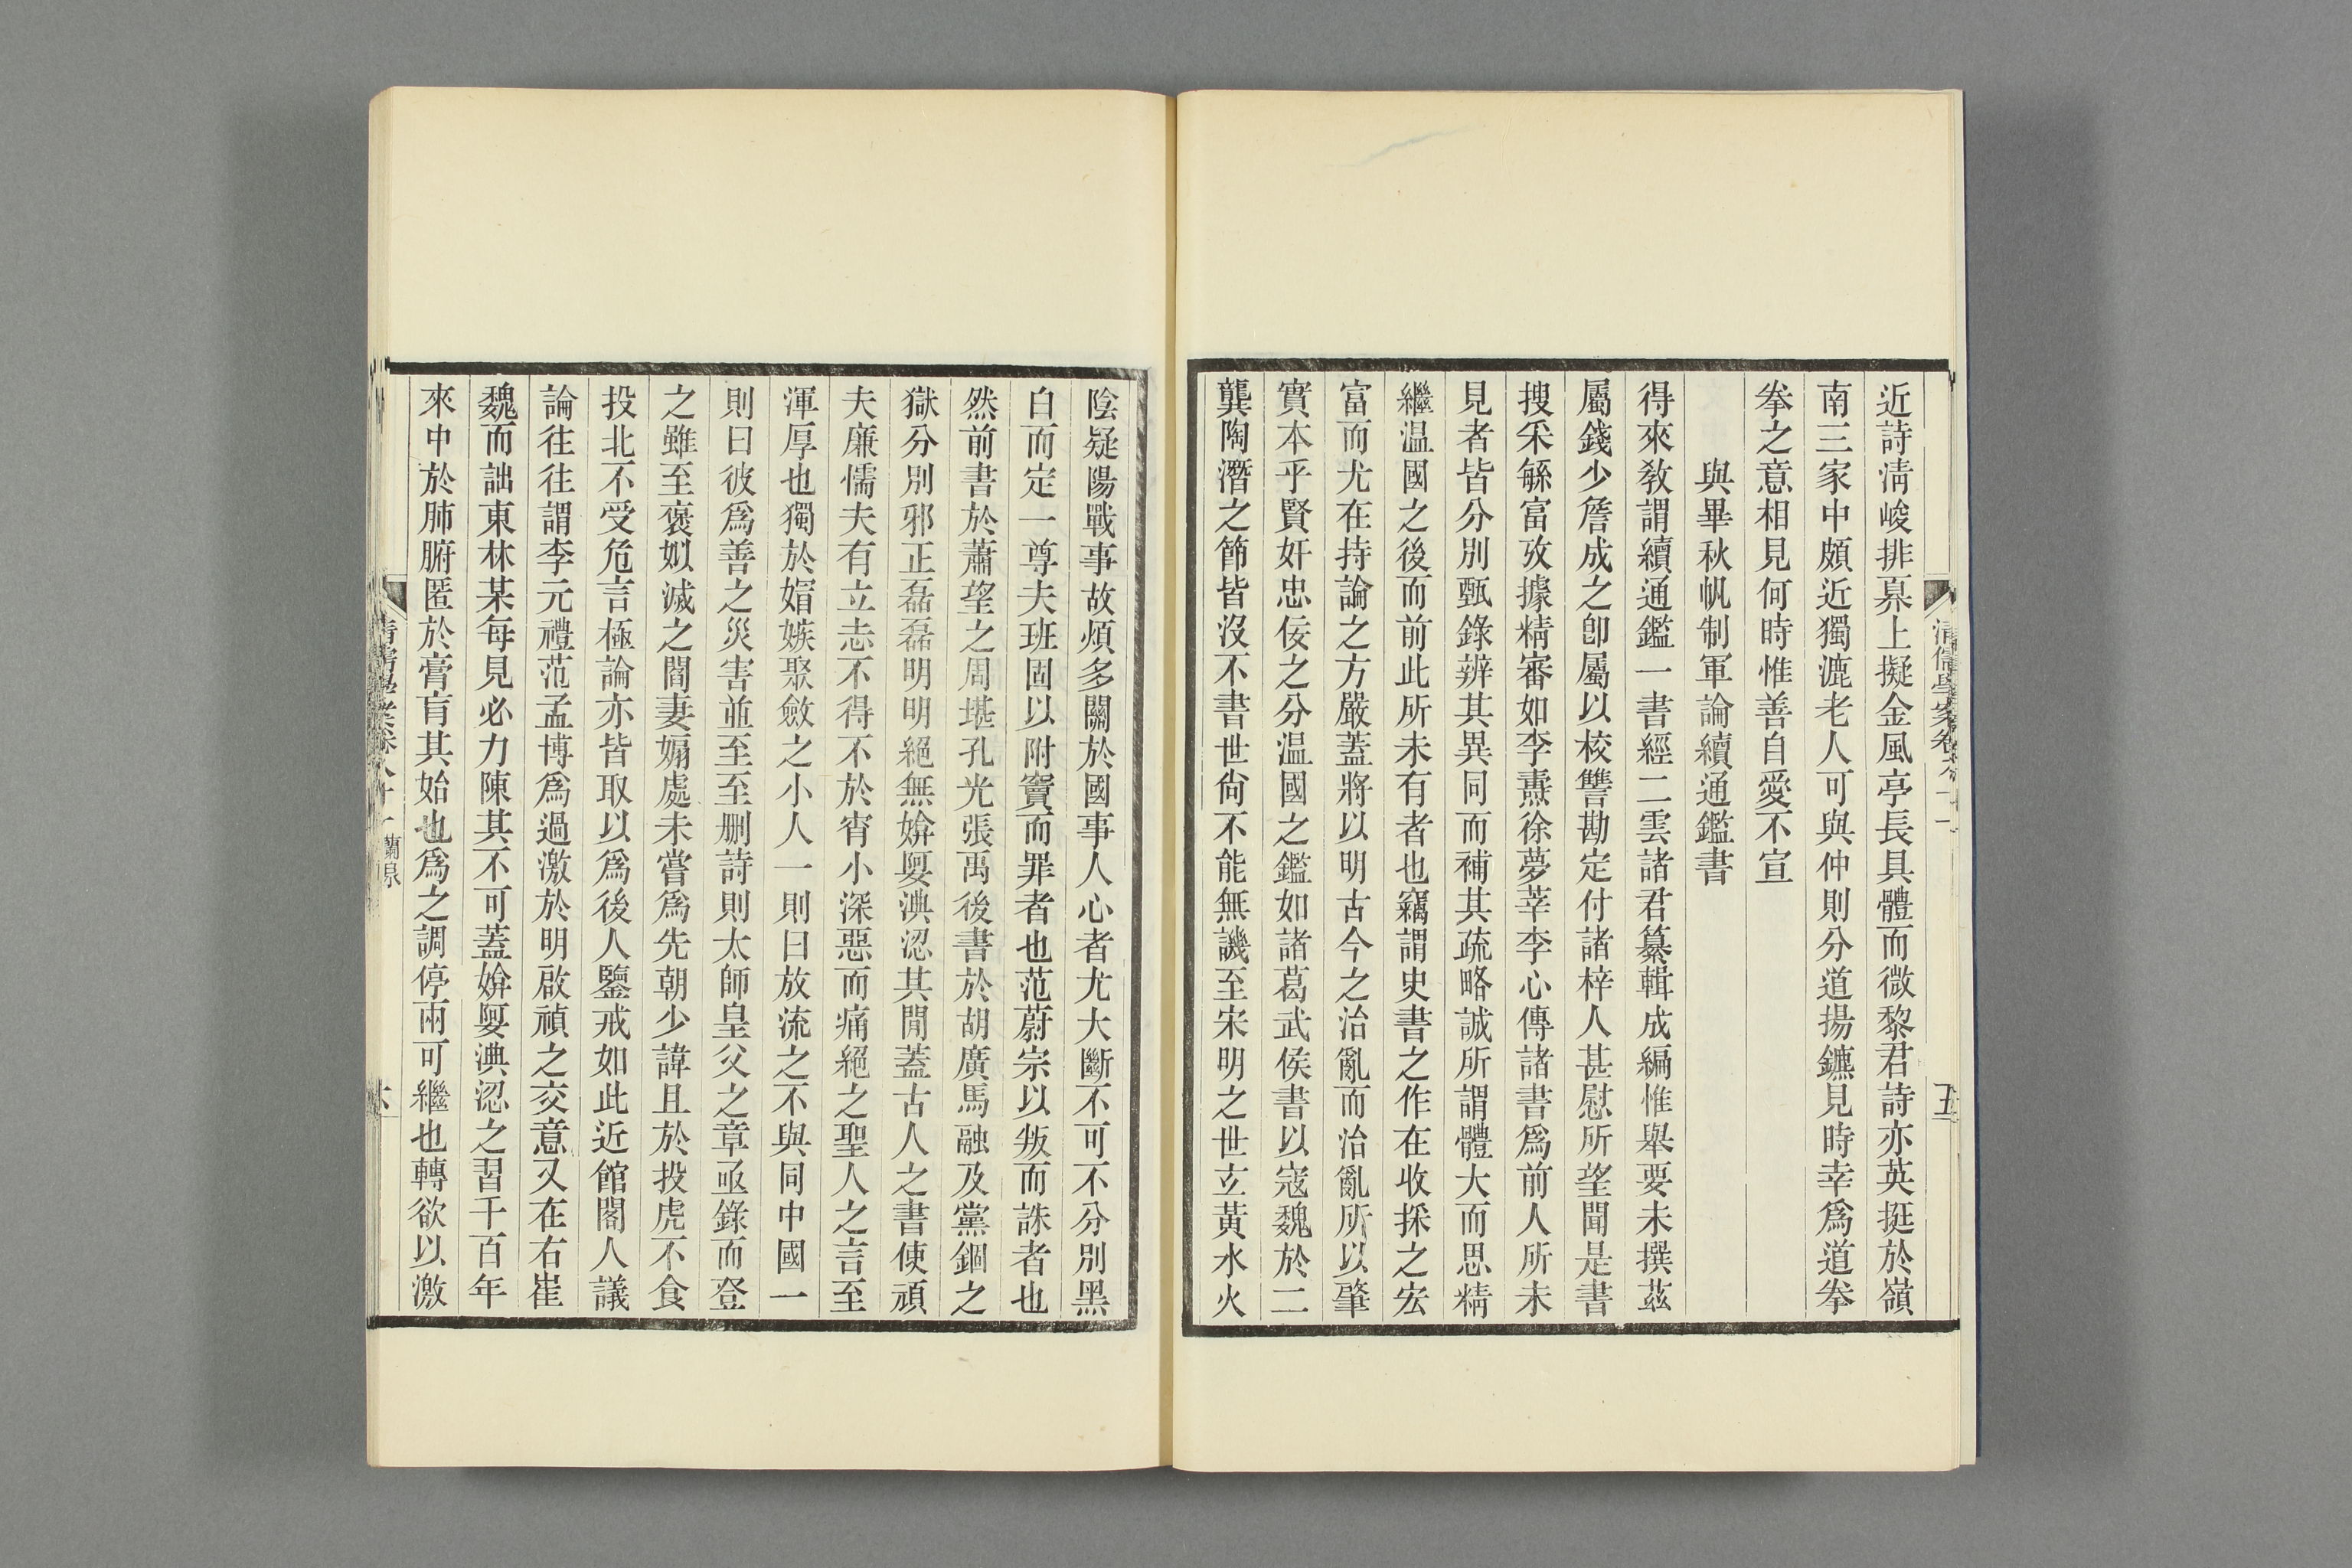 近詩淸峻排奡上擬金風亭長具體而微黎君詩亦英挺於嶺
南三家中頗近獨漉老人可與仲則分道揚鑣見時幸爲道拳
拳之意相見何時惟善自愛不宣
與畢秋帆制軍論續通鑑書
得來敎謂續通鑑一書經二雲諸君纂輯成編惟舉要未撰茲
屬錢少詹成之卽屬以校讐勘定付諸梓人甚慰所望聞是書
搜采緐富攷據精審如李燾徐夢莘李心傳諸書爲前人所未
見者皆分別甄錄辨其異同而補其疏略誠所謂體大而思精
繼温國之後而前此所未有者也竊謂史書之作在收採之宏
富而尤在持論之方嚴蓋將以明古今之治亂而治亂所以肇
實本乎賢奸忠佞之分温國之鑑如諸葛武侯書以寇魏於二
龔陶潛之節皆沒不書世尙不能無譏至宋明之世玄黃水火
陰疑陽戰事故煩多關於國事人心者尤大斷不可不分別黑
白而定一尊夫班固以附竇而罪者也范蔚宗以叛而誅者也
然前書於蕭望之周堪孔光張禹後書於胡廣馬融及黨錮之
獄分別邪正磊磊明明絕無媕娿淟涊其閒蓋古人之書使頑
夫廉懦夫有立志不得不於宵小深惡而痛絕之聖人之言至
渾厚也獨於媢嫉聚斂之小人一則曰放流之不與同中國一
則曰彼爲善之災害並至至删詩則太師皇父之章亟錄而登
之雖至褒姒滅之閻妻煽處未嘗爲先朝少諱且於投虎不食
投北不受危言極論亦皆取以爲後人鑒戒如此近館閣人議
論往往謂李元禮范孟博爲過激於明啟禎之交意又在右崔
魏而詘東林某每見必力陳其不可蓋媕娿淟涊之習千百年
來中於肺腑匿於膏肓其始也爲之調停兩可繼也轉欲以激